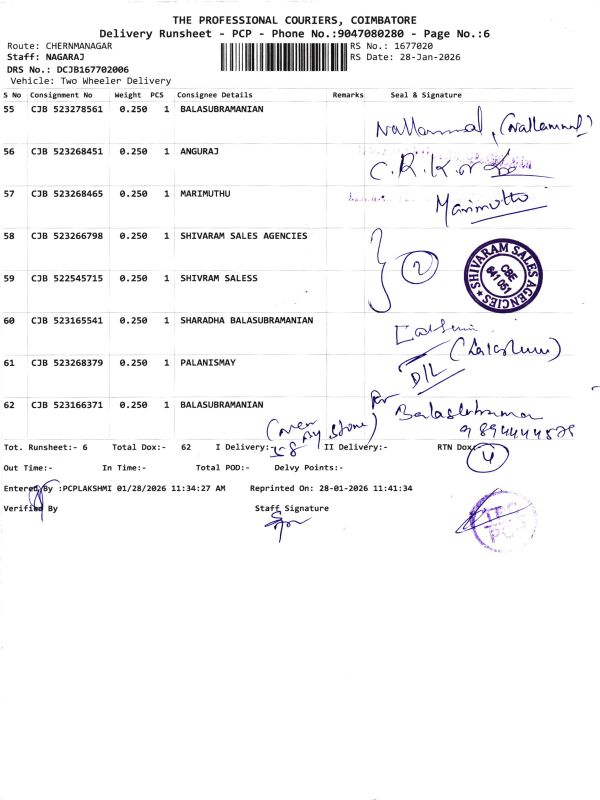 THE PROFESSIONAL COURIERS, COIMBATORE
Delivery Runsheet - PCP - Phone No.:9047080280 - Page No.:6
Route: CHERNMANAGAR RS No.: 1677020
Staff: NAGARAJ RS Date: 28-Jan-2026
DRS No.: DCJB167702006
Vehicle: Two Wheeler Delivery
S No Consignment No Weight PCS Consignee Details Remarks Seal & Signature
55 CJB 523278561 0.250 1 BALASUBRAMANIAN
Nallammal, (Nallammal)
56 CJB 523268451 0.250 1 ANGURAJ
C.R.K
57 CJB 523268465 0.250 1 MARIMUTHU
Marimuthu
58 CJB 523266798 0.250 1 SHIVARAM SALES AGENCIES
2
SHIVARAM SALES AGENCIES
CBE
641 051
59 CJB 522545715 0.250 1 SHIVRAM SALESS
60 CJB 523165541 0.250 1 SHARADHA BALASUBRAMANIAN
61 CJB 523268379 0.250 1 PALANISMAY
D/L
62 CJB 523166371 0.250 1 BALASUBRAMANIAN
Tot. Runsheet:- 6 Total Dox:- 62 I Delivery:- 58 II Delivery:- RTN Dox:- 4
Out Time:- In Time:- Total POD:- Delvy Points:-
Entered By :PCPLAKSHMI 01/28/2026 11:34:27 AM Reprinted On: 28-01-2026 11:41:34
Verified By Staff Signature